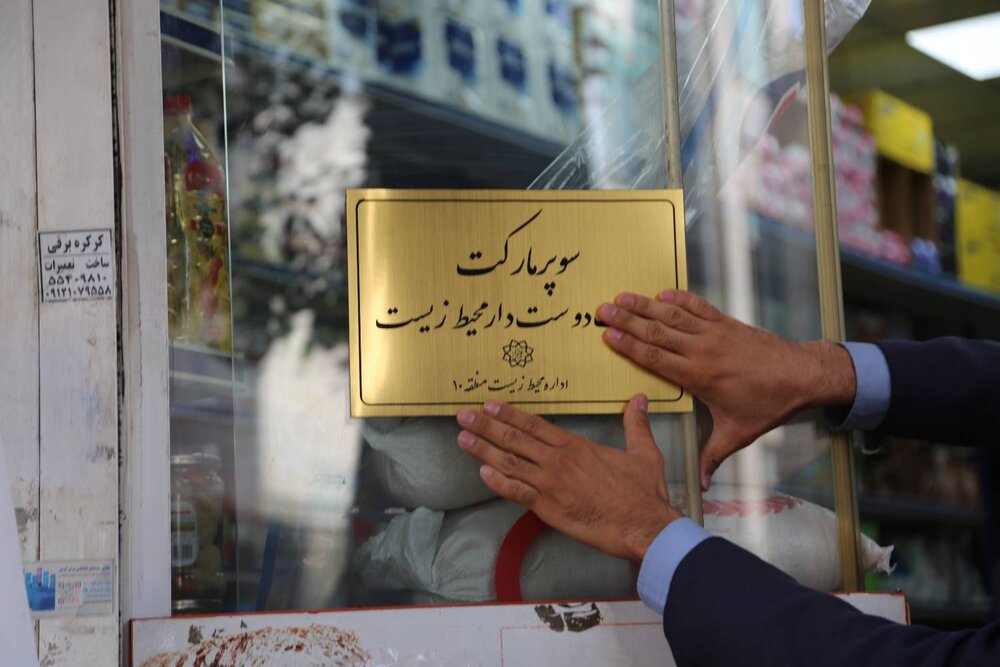 سوپرمارکت
دوست‌دار محیط زیست
اداره محیط زیست منطقه ۱۰
کرکره برقی
ساخت تعمیرات
۵۵۴۰۹۸۱۰
۰۹۱۲۱۰۷۹۵۵۸